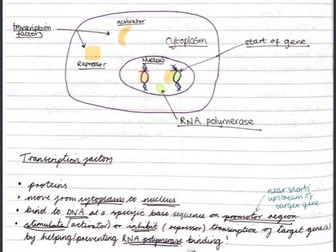 transcription
factors
activator
Cytoplasm
start of gene
Repressor
Nucleus
RNA polymerase
Transcription factors
near start/
upstream of
target gene
• proteins
• move from cytoplasm to nucleus
• bind to DNA at a specific base sequence on promotor region
• stimulate (activator) or inhibit (repressor) transcription of target genes
by helping/preventing RNA polymerase binding!